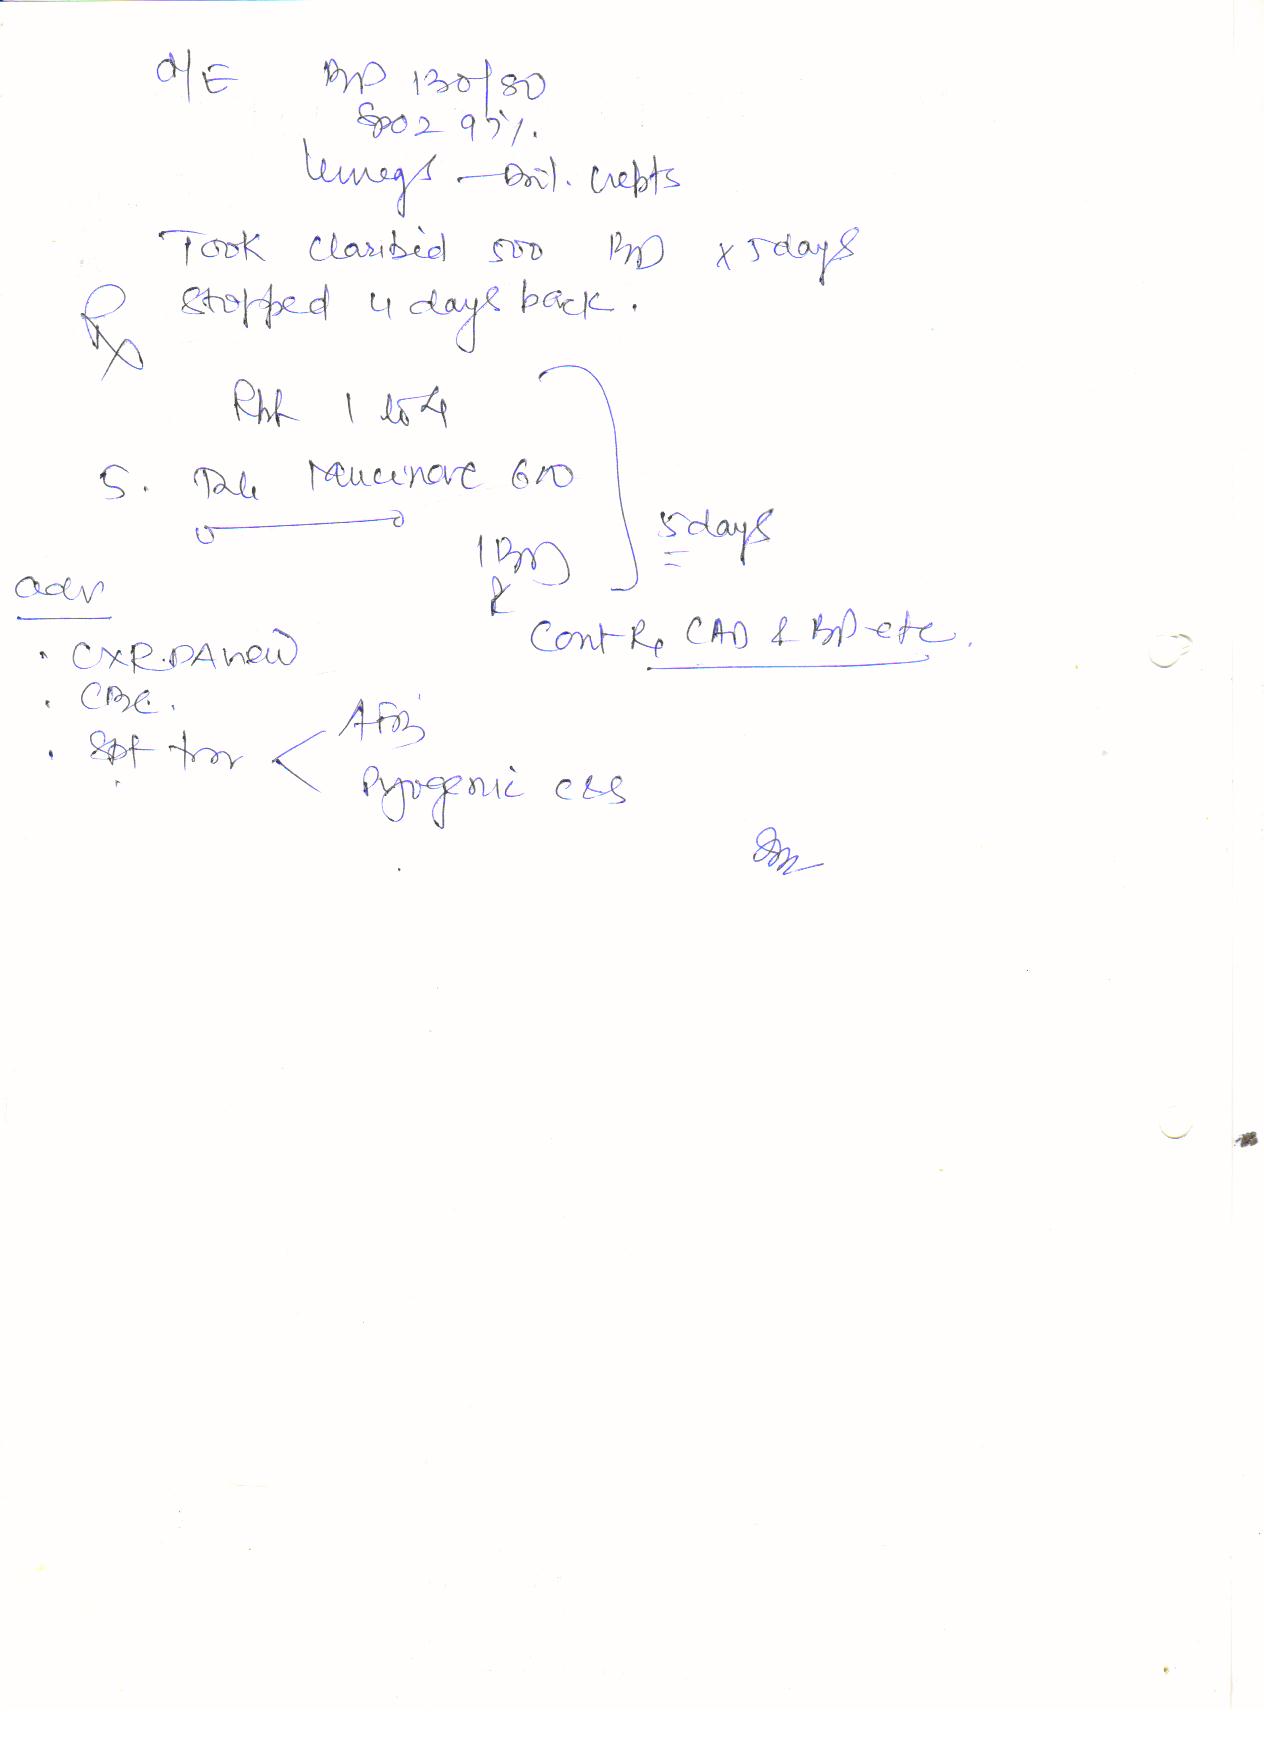 O/E BP 130/80
SpO2 95%.
Lungs - Bil. crepts
Took Claribid 500 BD x 5 days
Rx stopped 4 days back.
Rpt 1 to 4
5. Tab Mucinac 600
1 BD
5 days
&
Cont Rx CAD & BP etc.
adv
• CXR.PA view
• CBC.
• Spt for < AFB
Pyogenic C&S